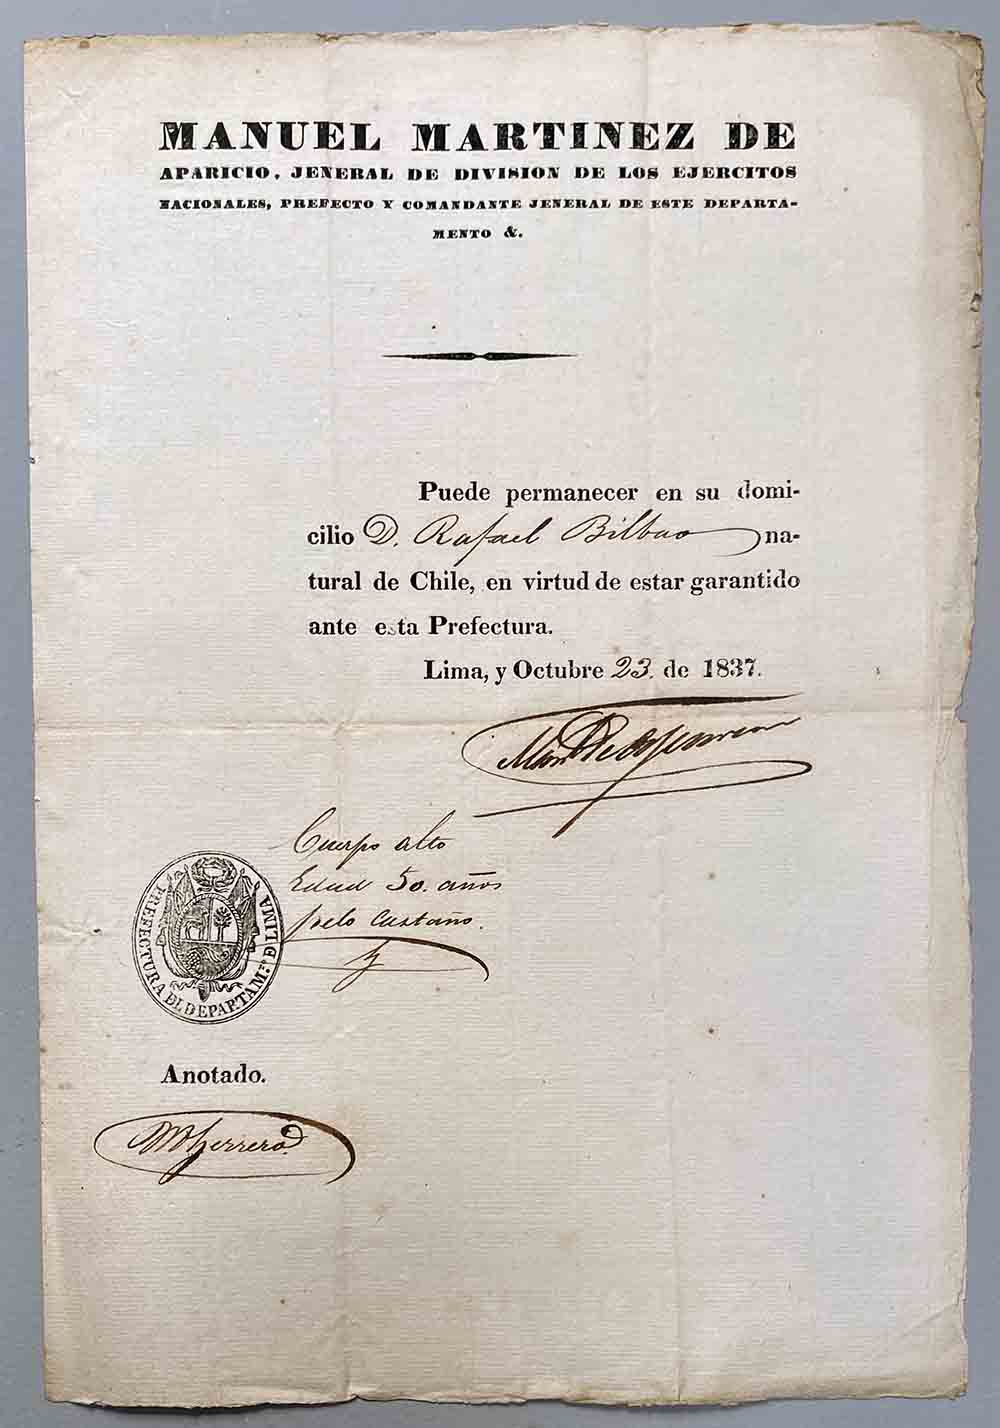 MANUEL MARTINEZ DE
APARICIO, JENERAL DE DIVISION DE LOS EJERCITOS
NACIONALES, PREFECTO Y COMANDANTE JENERAL DE ESTE DEPARTA-
MENTO &.
Puede permanecer en su domi-
cilio D. Rafael Bilbao na-
tural de Chile, en virtud de estar garantido
ante esta Prefectura.
Lima, y Octubre 23. de 1837.
Cuerpo alto
Edad 50. años
pelo castaño.
PREFECTURA DL DEPARTAM.º D LIMA
Anotado.